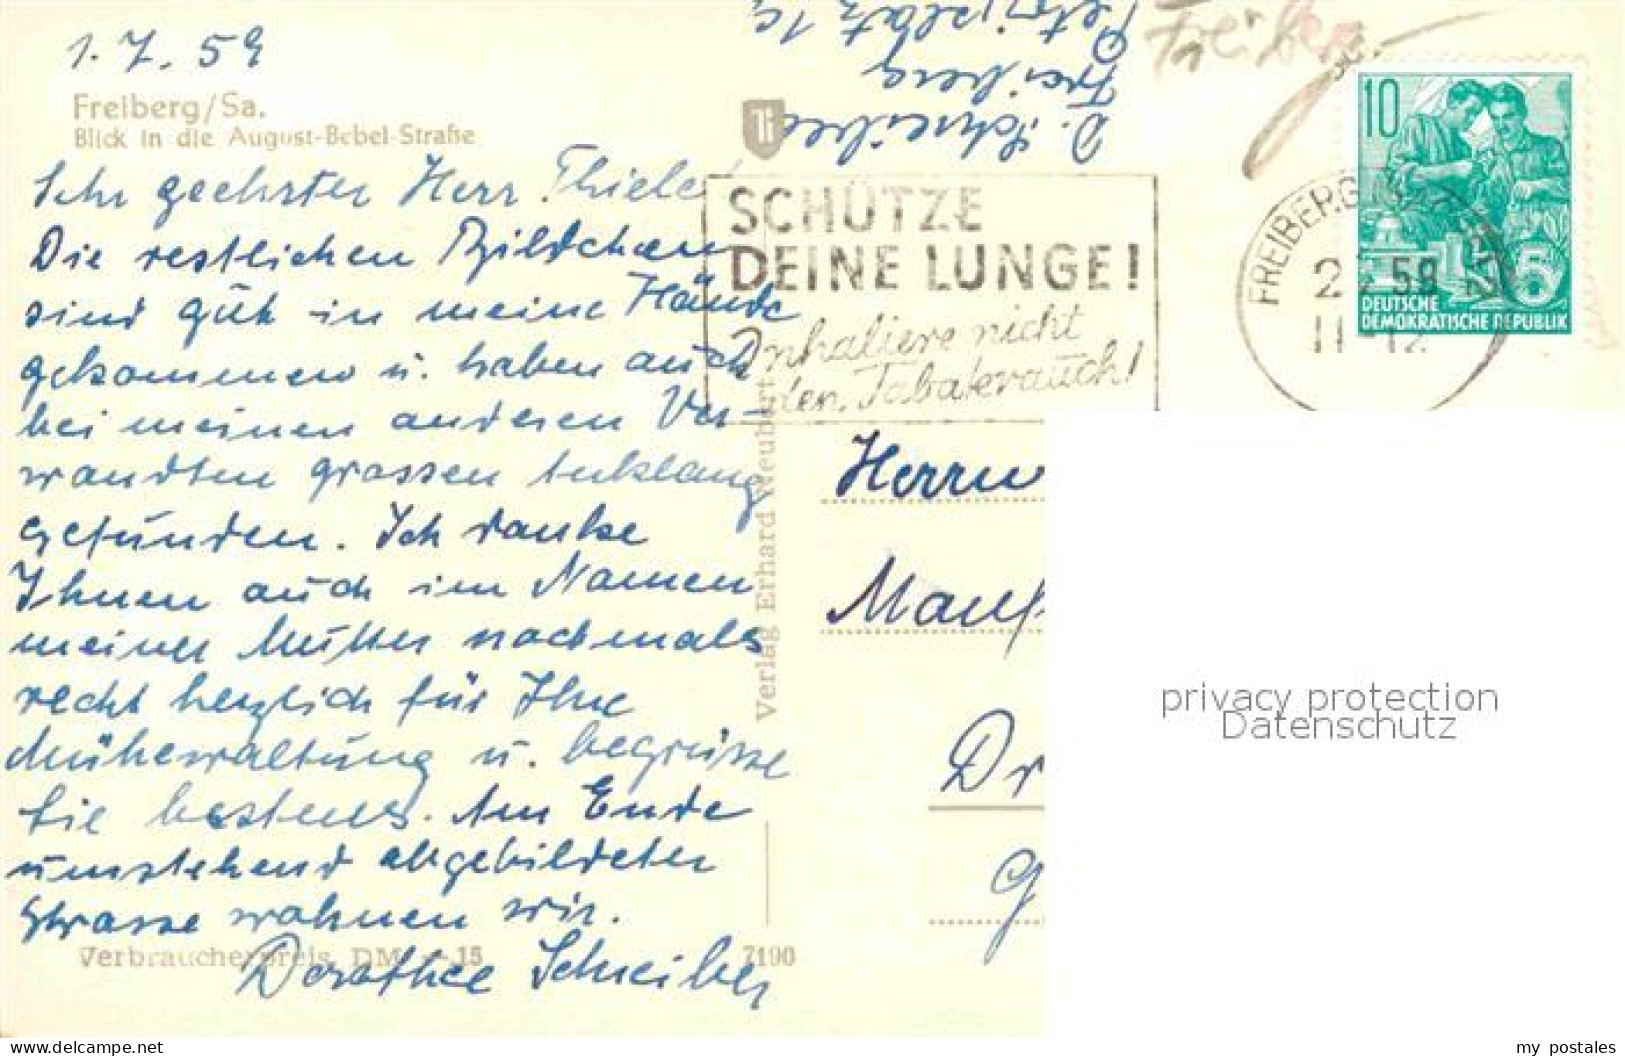 1.7.59
Freiberg/Sa.
Blick in die August-Bebel-Straße
Sehr geehrter Herr Thiele!
Die restlichen Bildchen
sind gut in meine Hände
gekommen u. haben auch
bei meinen anderen Ver-
wandten grossen Anklang
gefunden. Ich danke
Ihnen auch im Namen
meiner Mutter nochmals
recht herzlich für Ihre
Mühewaltung u. begrüsse
Sie bestens. Am Ende
umstehend abgebildeter
Strasse wohnen wir.
Dorothee Schreiber
Verbraucherpreis DM -.15
7190
Verlag Erhard Neubert
D. Schreiber
Freiberg
Petriplatz 1c
Freiberg
SCHÜTZE
DEINE LUNGE!
Inhaliere nicht
den Tabakrauch!
FREIBERG
59
11-12
10
DEUTSCHE
DEMOKRATISCHE REPUBLIK
Herrn
Dr
G
privacy protection
Datenschutz
www.delcampe.net
my postales